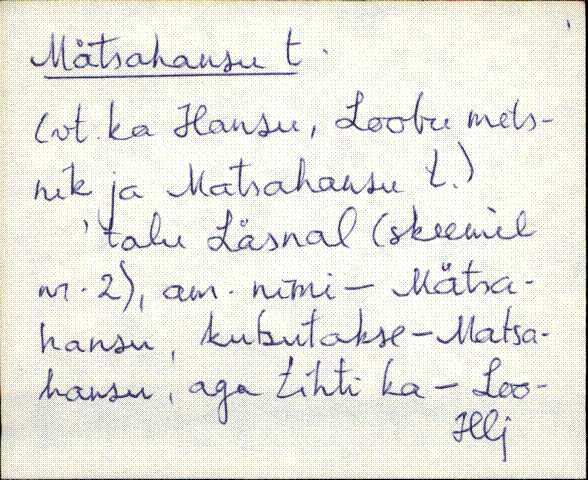 Mätsahansu t.
(vt. ka Hansu, Loobu mets-
nik ja Matsahansu t.)
'talu Läsnal (skeemil
nr. 2), am. nimi – Mätsa-
hansu, kutsutakse – Matsa-
hansu, aga tihti ka – Loo-
Hlj